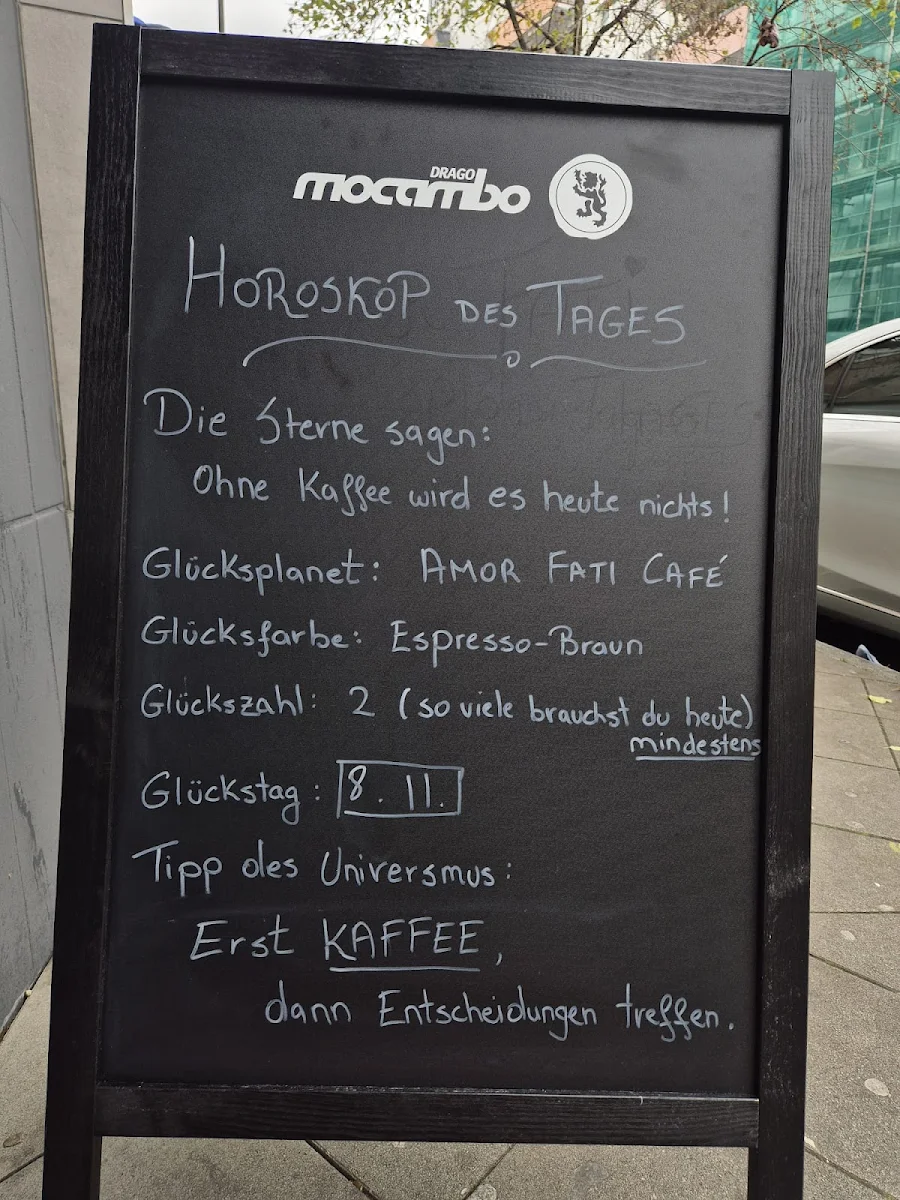 DRAGO
mocambo
HOROSKOP DES TAGES
Die Sterne sagen:
Ohne Kaffee wird es heute nichts!
Glücksplanet: AMOR FATI CAFÉ
Glücksfarbe: Espresso-Braun
Glückszahl: 2 (so viele brauchst du heute)
mindestens
Glückstag: 8.11.
Tipp des Universmus:
Erst KAFFEE,
dann Entscheidungen treffen.